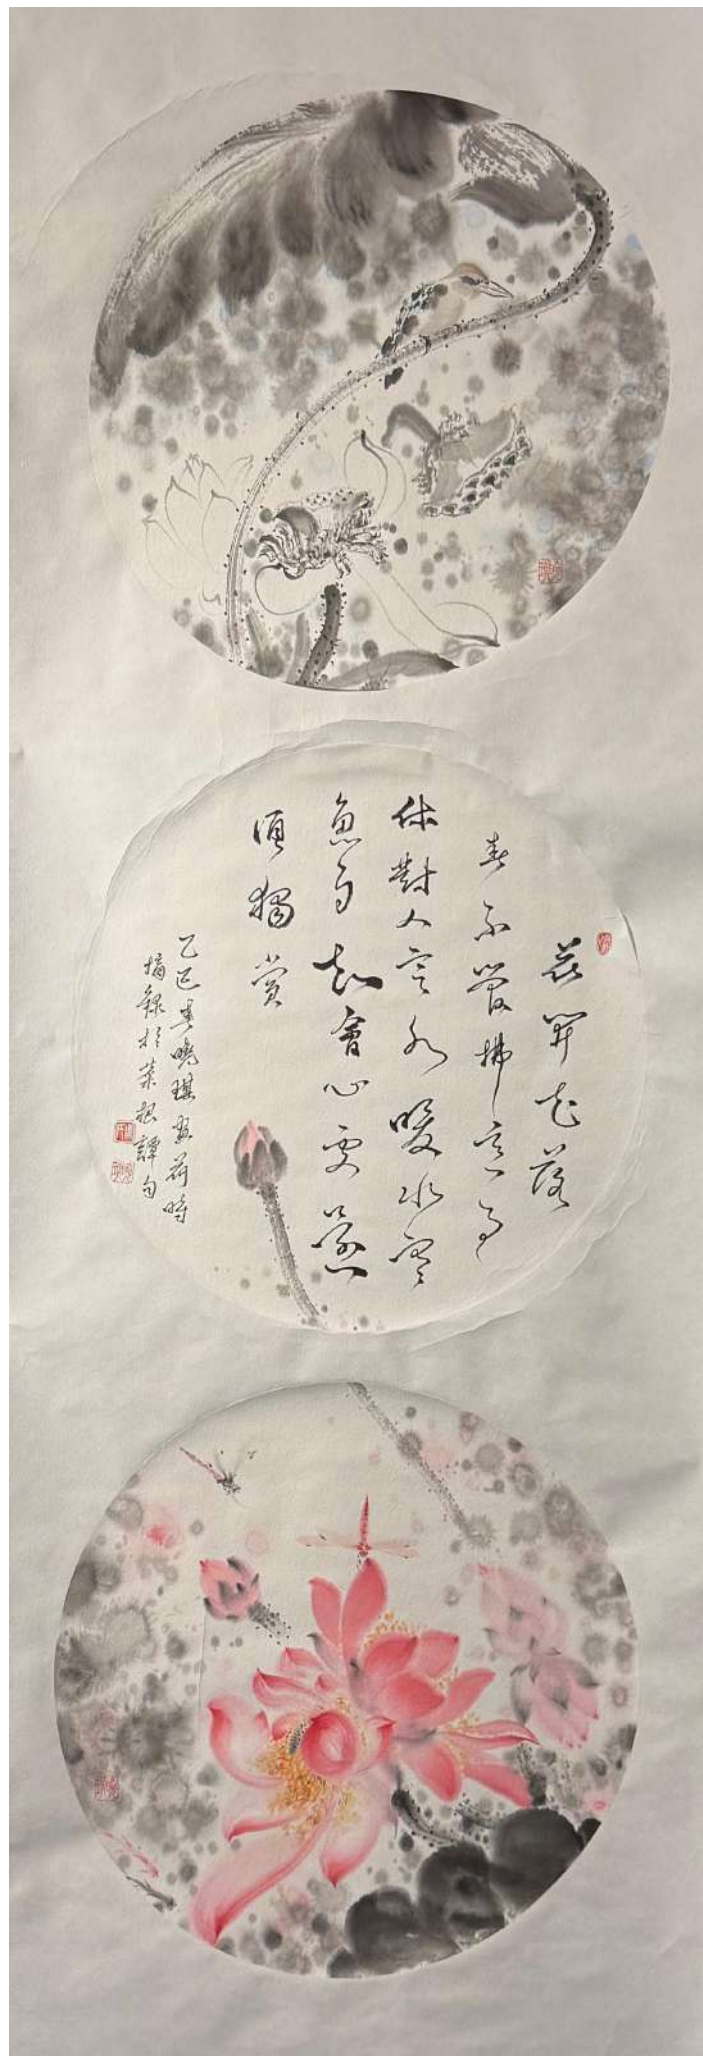 花開花落
春不管拂意事
休對人言水暖水寒
魚自知會心處還
須獨賞
乙巳春曉琪畫荷時
摘錄於菜根譚句